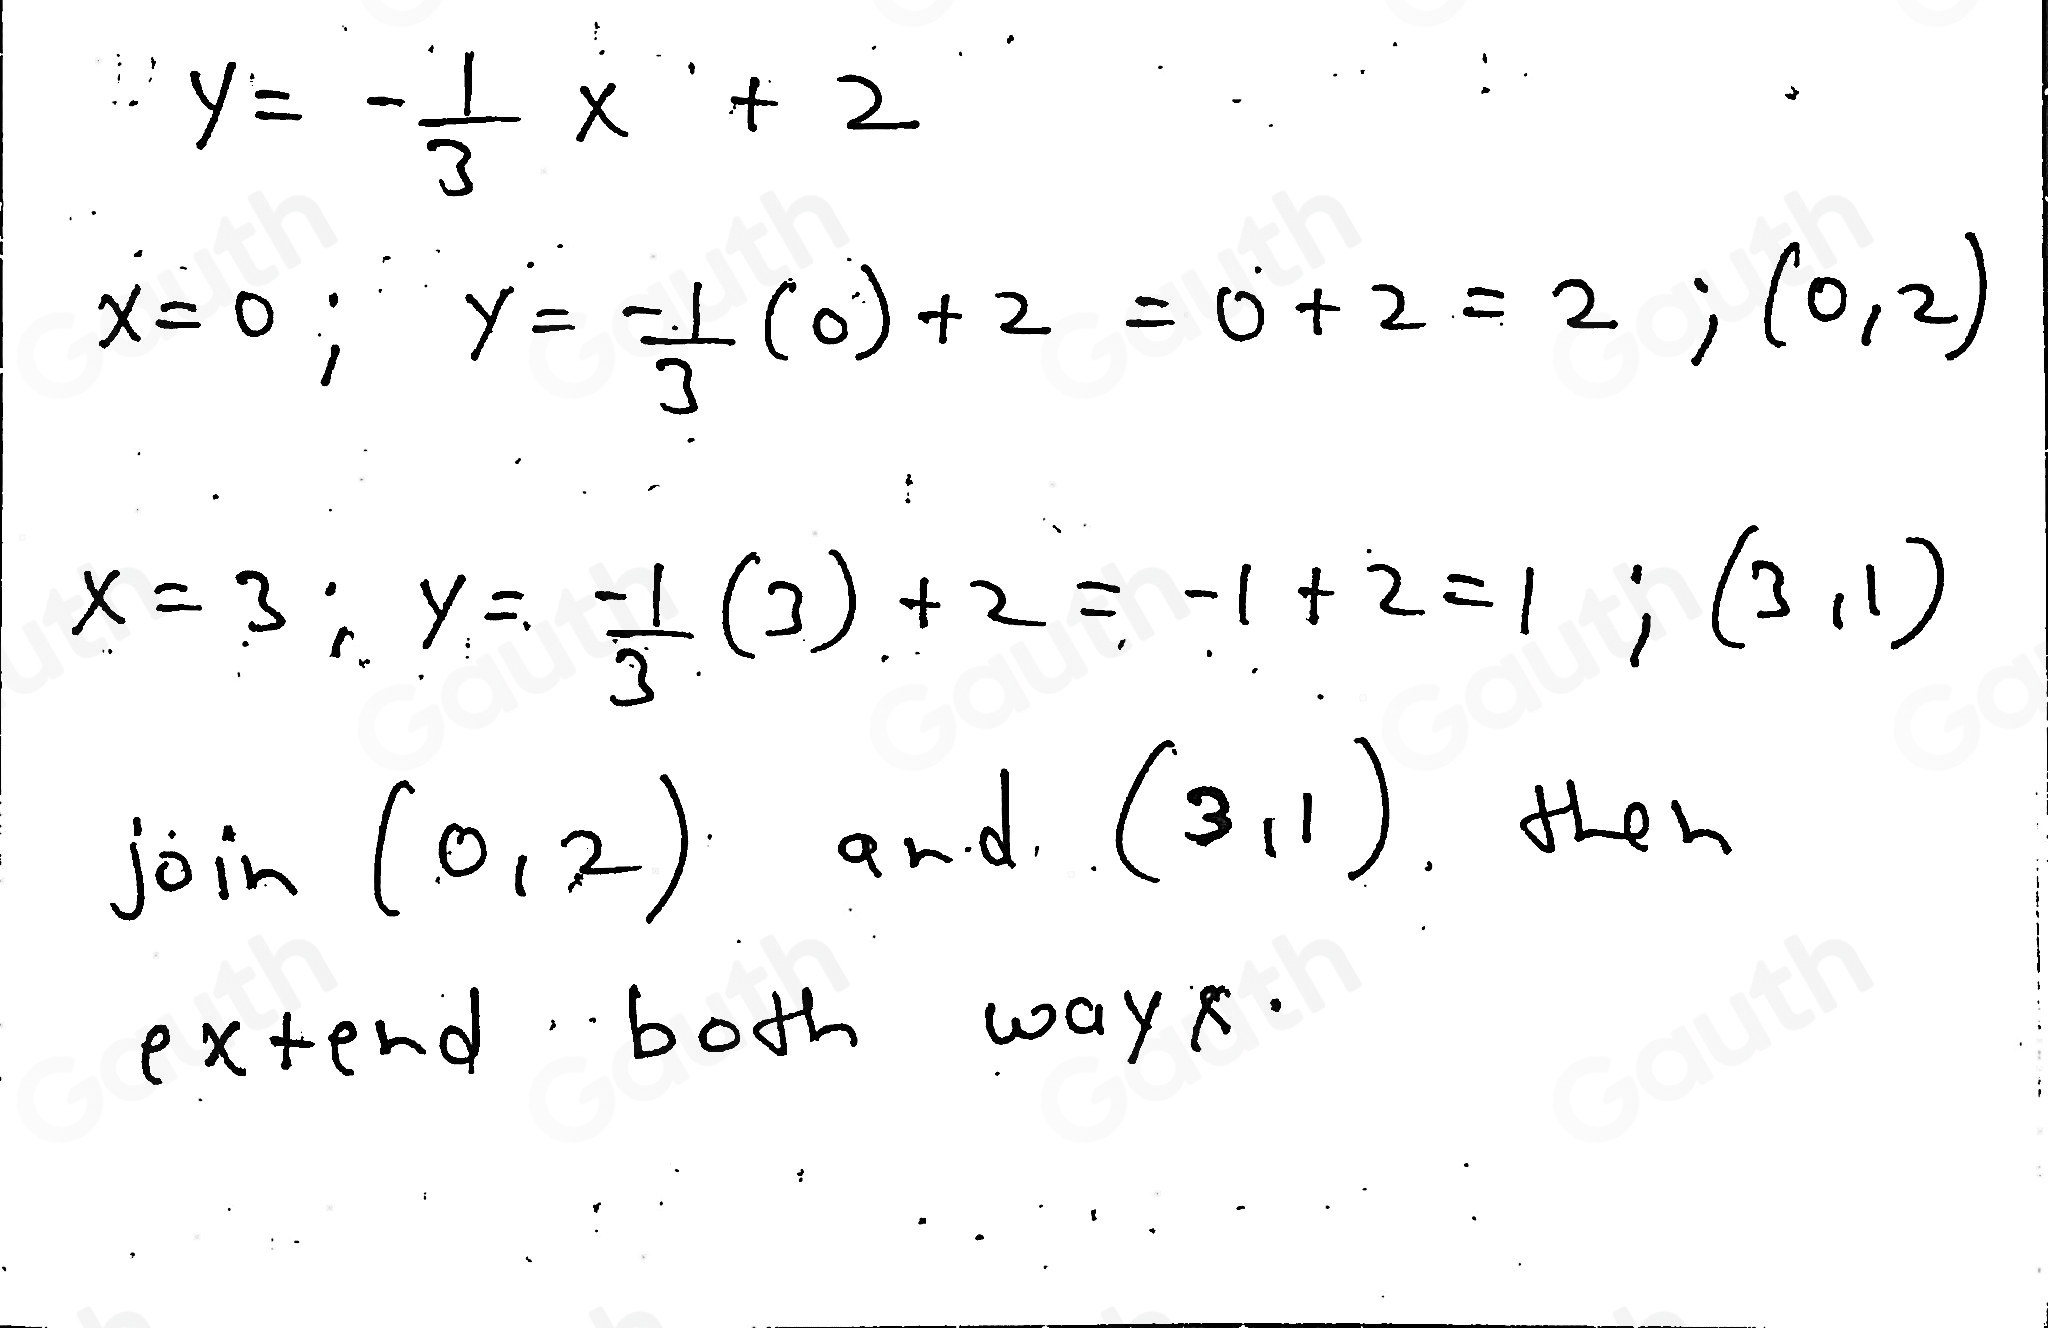 y = -1/3 x + 2
x = 0 ; y = -1/3 (0) + 2 = 0 + 2 = 2 ; (0,2)
x = 3 ; y = -1/3 (3) + 2 = -1 + 2 = 1 ; (3,1)
join (0,2) and (3,1). then
extend both ways.